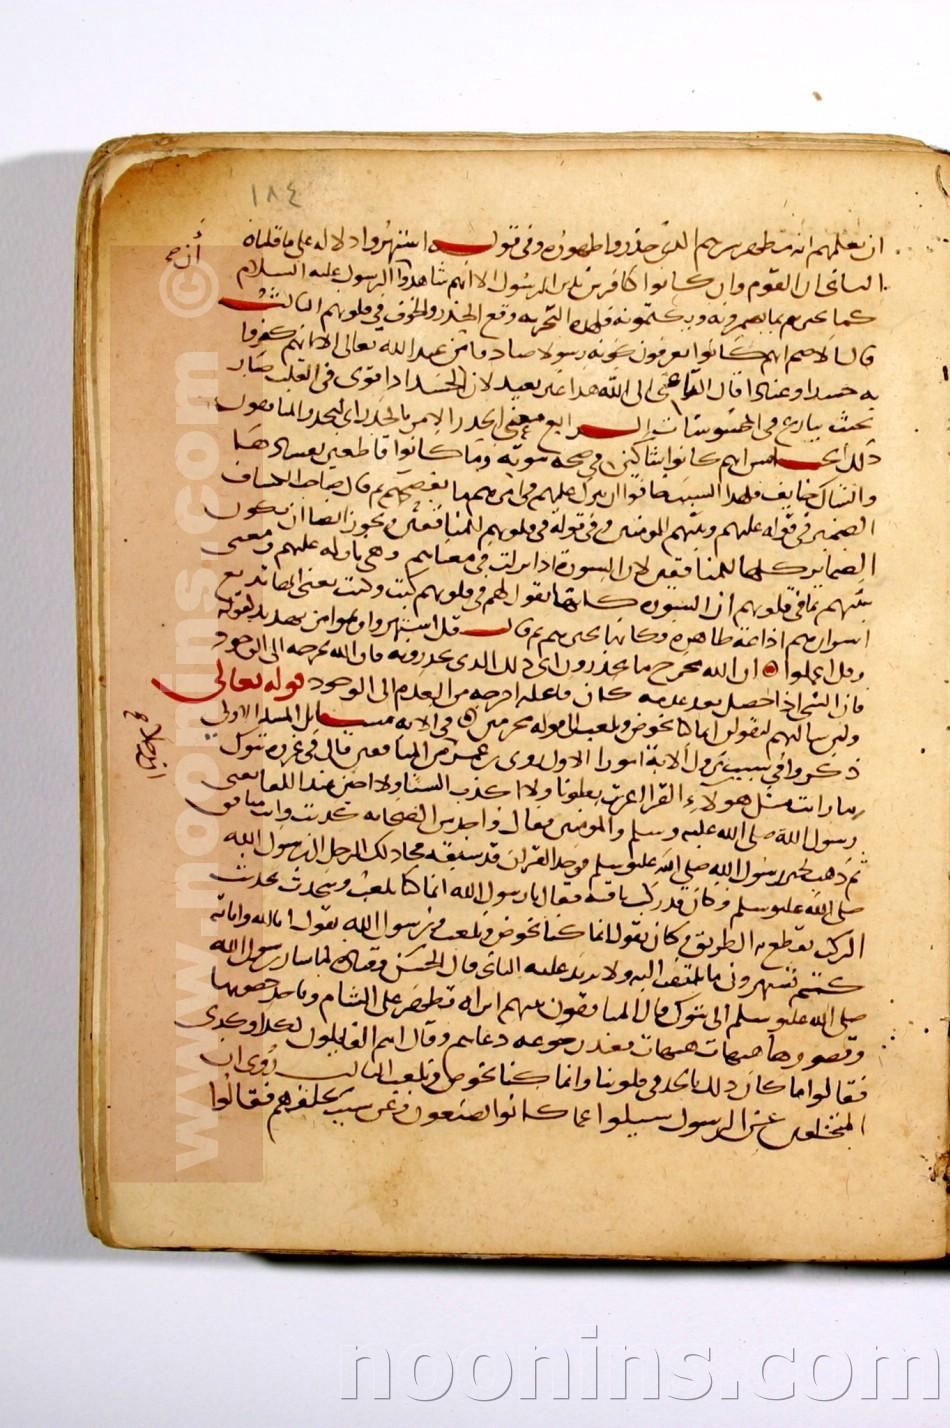 ١٨٤
ان يعلمهم انه يظهر سرهم الذي حذروا ظهوره وفى قوله استهزوا دلالة على ما قلناه
الثانى ان القوم وان كانوا كافرين بدين الرسول الا انهم شاهدوا الرسول عليه السلام
كما يخبرهم بما يضمرونه ويكتمونه فلهذه التجربه وقع الحذر والخوف فى قلوبهم الثالث
قال الاصم انهم كانوا يعرفون كونه رسولا صادقا من عند الله تعالى الا انهم كفروا
به حسدا وعنادا قال القاضى الى الله هذا غير بعيد لان الحسد اذا قوى فى القلب صار
بحيث ينازع فى المحسوسات الرابع معنى الحذر الامر بالحذر اى ليحذر المنافقون
ذلك الخامس انهم كانوا شاكين فى صحه نبوته وما كانوا قاطعين بفسادها
والشاك خايف فلهذا السبب خافوا ان ينزل عليهم فى امرهم ما يفضحهم ثم قال صاحب الكشاف
الضمير فى قوله عليهم وتنبئهم للمومنين وفى قوله فى قلوبهم للمنافقين ويجوز ايضا ان يكون
الضماير كلها للمنافقين لان السورة اذا نزلت فى معناهم فهى نازلة عليهم ومعنى
تنبئهم بما فى قلوبهم ان السورة كانها تقول لهم فى قلوبهم كيت وكيت يعنى انها تذيع
اسرارهم اذاعة ظاهرة وكانها تخبرهم ثم قال قل استهزوا وهو امر تهديد لقوله
وقل اعملوا ان الله مخرج ما تحذرون اى ذلك الذى تحذرونه فان الله يخرجه الى الوجود
فان الشى اذا حصل بعد عدمه كان فاعله اخرجه من العدم الى الوجود قوله تعالى
ولين سالتهم ليقولن انما كنا نخوض ونلعب الى قوله مجرمين فى الايه مسايل المسله الاولى
ذكروا فى سبب نزول الاية امورا الاول روى ابن عمر ان رجلا من المنافقين قال فى غزوة تبوك
ما رايت مثل هولاء القرا ارغب بطونا ولا اكذب السنا ولا اجبن عند اللقا يعنى
رسول الله صلى الله عليه وسلم والمومنين فقال واحد من الصحابه كذبت وانت منافق
ثم ذهب ليخبر رسول الله صلى الله عليه وسلم فوجد القران قد سبقه فجا ذلك الرجل الى رسول الله
صلى الله عليه وسلم وكان قد ركب ناقته فقال يا رسول الله انما كنا نلعب ونتحدث بحديث
الركب نقطع به الطريق وكان يقول انما كنا نخوض ونلعب ورسول الله يقول ابالله واياته
كنتم تستهزون ما يلتفت اليه ولا يزيد عليه الثانى قال الحسن وقتاده لما سار رسول الله
صلى الله عليه وسلم الى تبوك قال المنافقون بينهم اتراه يظهر على الشام وياخذ حصونها
وقصورها هيهات هيهات فعند رجوعه دعاهم وقال انتم القايلون بكذا وكذى
فقالوا ما كان ذلك بالجد فى قلوبنا وانما كنا نخوض ونلعب الثالث روى ان
المتخلفين عن الرسول سيلوا عما كانوا يصنعون وعن سبب تخلفهم فقالوا
www.noonins.com ©
noonins.com